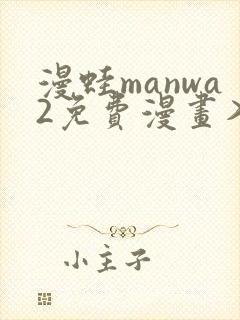 漫蛙manwa
2免費漫畫入
小主子